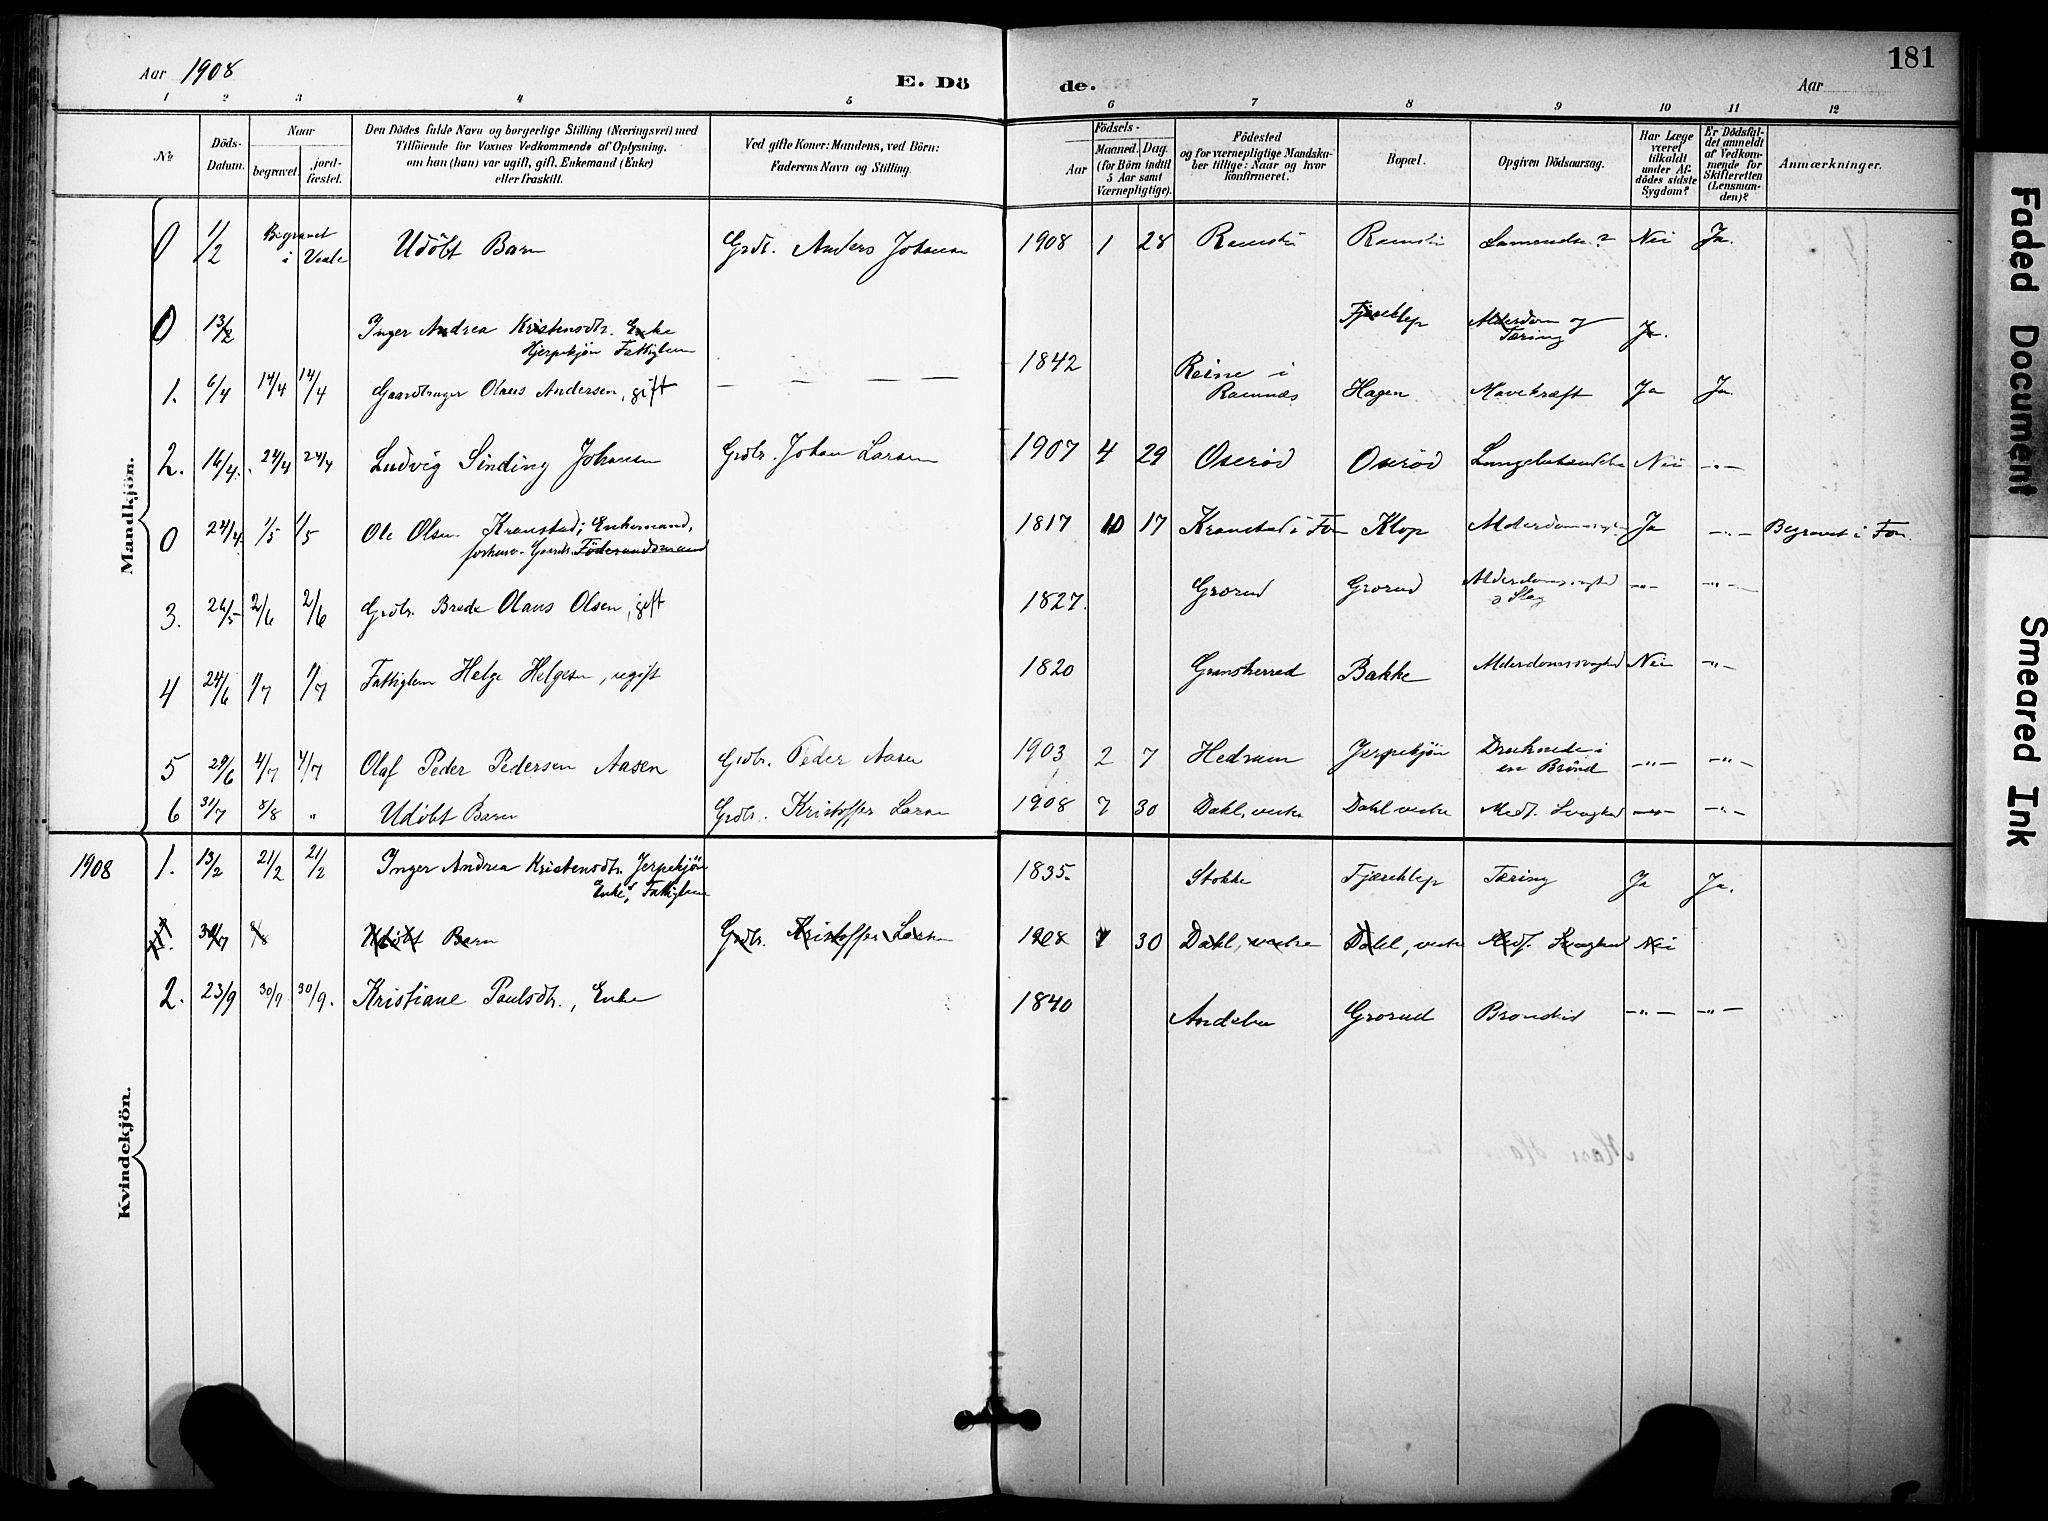 Aar 1908
E. Dö
de.
Aar
181
1 2 3 4 5 6 7 8 9 10 11 12
No
Döds-Datum.
Naar
begravet.
jord-fæstet.
Den Dödes fulde Navn og borgerlige Stilling (Næringsvei) med
Tilföiende for Voxnes Vedkommende af Oplysning,
om han (hun) var ugift, gift, Enkemand (Enke)
eller fraskilt.
Ved gifte Koner: Mandens, ved Börn:
Faderens Navn og Stilling.
Födsels-
Aar
Maaned. Dag
(for Börn indtil
5 Aar samt
Værnepligtige).
Födested
og for værnepligtige Mandska-
ber tillige: Naar og hvor
konfirmeret.
Bopæl.
Opgiven Dödsaarsag.
Har Læge
været
tilkaldt
under Af-
dödes sidste
Sygdom?
Er Dödsfal-
det anmeldt
af Vedkom-
mende for
Skifteretten
(Lensman-
den)?
Anmærkninger.
Mandkjön.
0 1/2 Begravet i Udöbt Barn Grdr. Anders Johansen 1908 1 28 Nei Ja.
0 13/2 Inger Andrea Kristensdtr. Enke Fjæreklep Alderdom og Ja.
Hjerpekjön Fattiglem Tæring
1. 6/4 14/4 14/4 Gaardbruger Olaus Andersen, gift — — — — 1842 Reine i Ramnæs Hagen Mavekræft Ja Ja.
2. 16/4. 24/4 24/4 Ludvig Sinding Johansen Grdbr. Johan Larsen 1907 4 29 Oserød Oserød Nei -"-
0 24/4. 1/5 1/5 Ole Olsen Kranstad; Enkemand, 1817 10 17 Kranstad i Fon Klop Ja -"- Begravet i Fon.
forhenv. Föderaadsmand
3. 26/5 2/6 2/6 Grdbr. Brede Olaus Olsen, gift 1827. Grorud Grorud Alderdomssvaghed & Slag -"- -"-
4 24/6 1/7 1/7 Fattiglem Helge Helgesen, ugift 1820 Gransherred Bakke Alderdomssvaghed Nei -"-
5 29/6 4/7 4/7 Olaf Peder Pedersen Aasen Grdbr. Peder Aasen 1903 2 7 Hedrum Jerpekjön Druknede i en Brönd -"- -"-
6 31/7 8/8 " Udöbt Barn Grdbr. Kristoffer Larsen 1908 7 30 Dahl, vestre Dahl vestre Medf. Svaghed -"- -"-
Kvindekjön.
1908 1. 13/2 21/2 21/2 Inger Andrea Kristensdtr. Jerpekjön 1835. Stokke Fjæreklep Tæring Ja Ja.
Enke, Fattiglem
30/7 8/8 Udöbt Barn Grdbr. Kristoffer Larsen 1908 7 30 Dahl, vestre Dahl, vestre Medf. Svaghed Nei
2. 23/9 30/9 30/9. Kristiane Paulsdtr., Enke 1840 Andebu Grorud -"- -"-
Faded Document
Smeared Ink